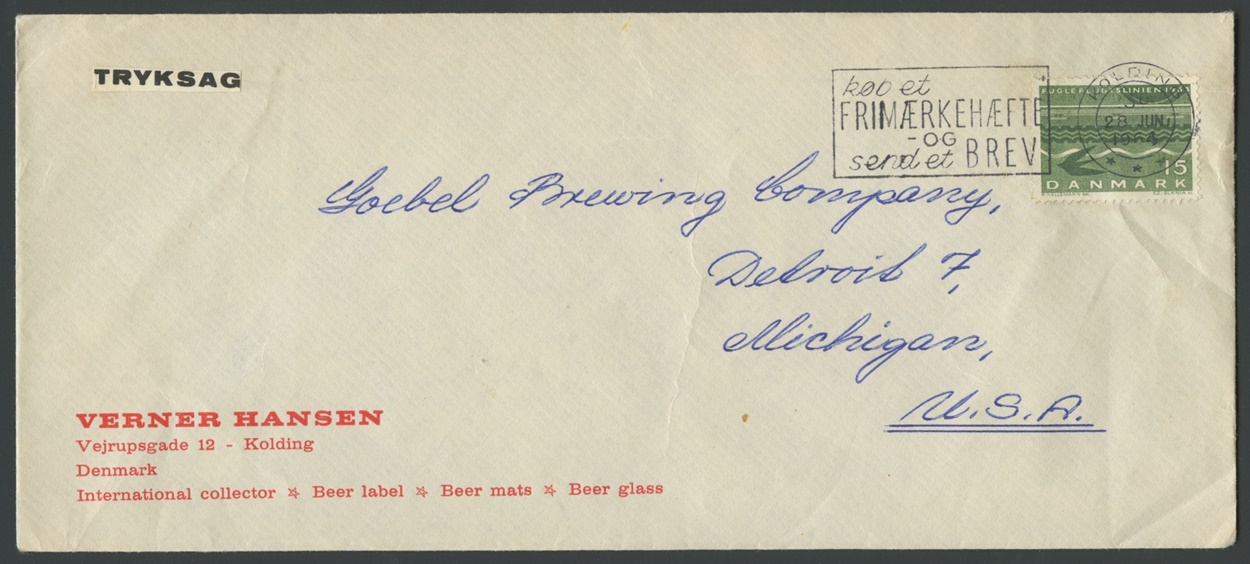 TRYKSAG
køb et
FRIMÆRKEHÆFTE
-OG
send et BREV
KOLDING
28 JUNI
1964
FUGLEFLUGTSLINIEN 1963
15
DANMARK
Goebel Brewing Company,
Detroit 7,
Michigan,
U.S.A.
VERNER HANSEN
Vejrupsgade 12 - Kolding
Denmark
International collector ☆ Beer label ☆ Beer mats ☆ Beer glass